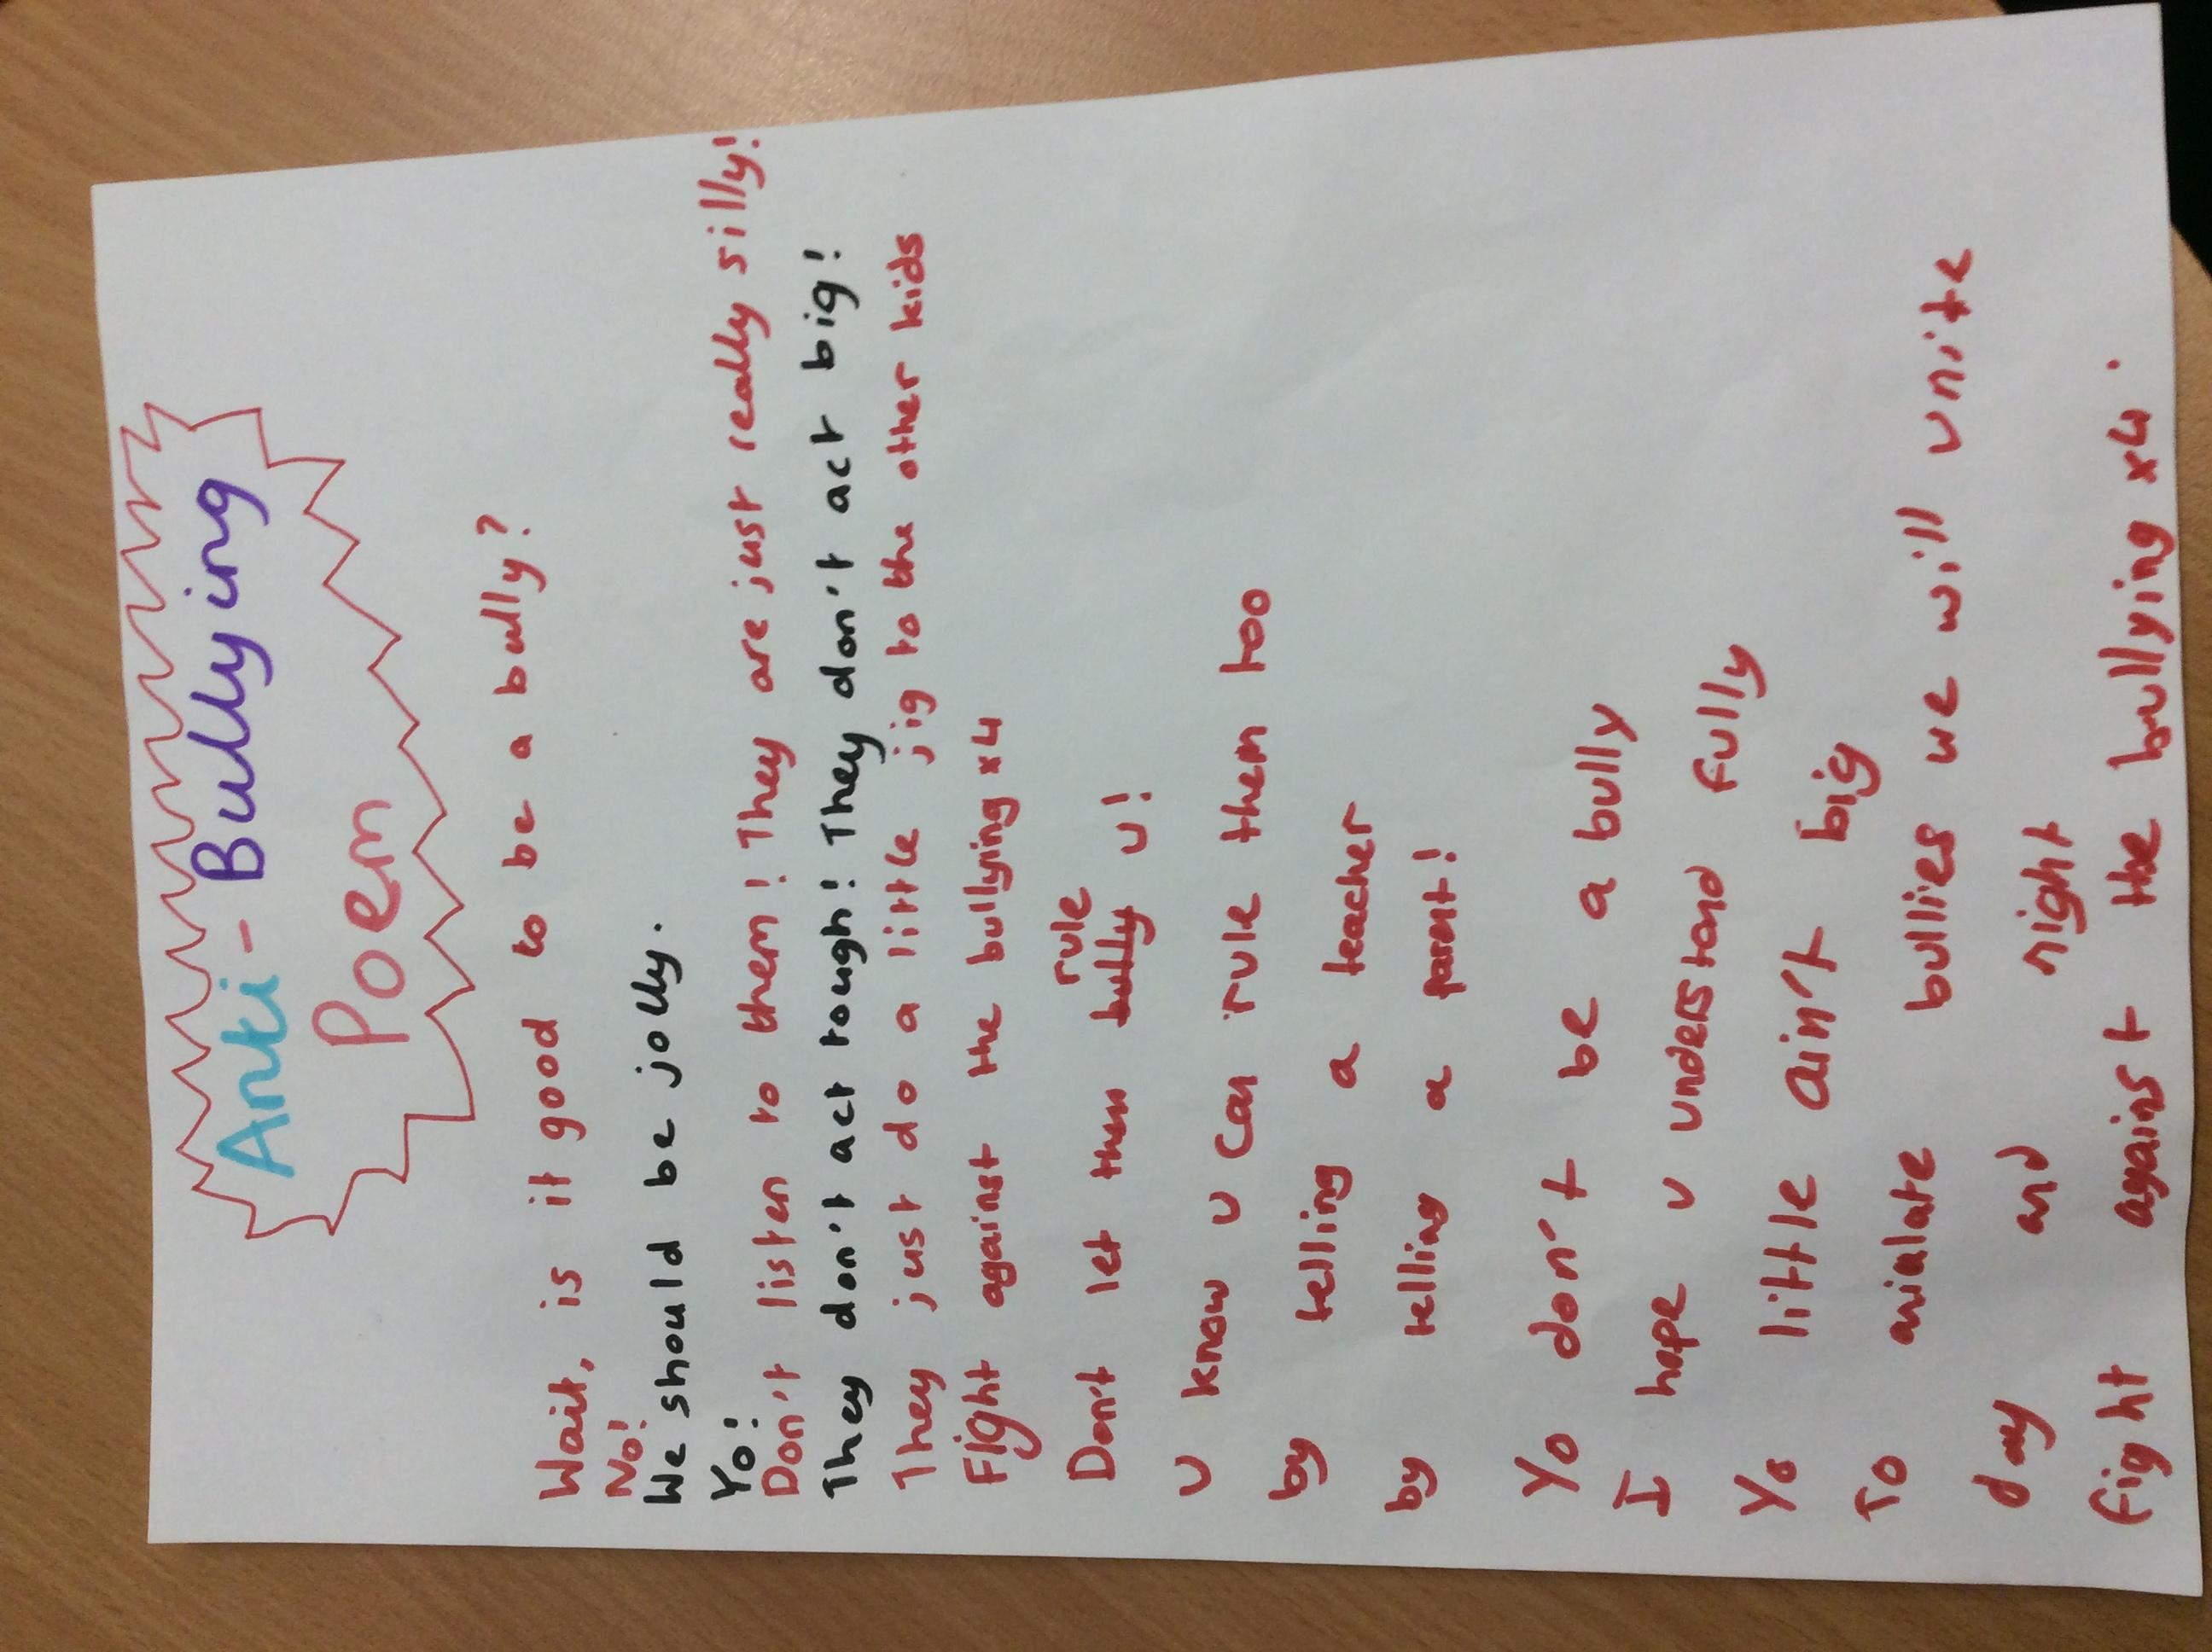 Anti-Bullying
Poem
Wait, is it good to be a bully?
No!
We should be jolly.
Yo!
Don't listen to them! They are just really silly!
They don't act tough! They don't act big!
They just do a little jig to the other kids
Fight against the bullying x4
rule
Don't let them bully u!
U know u can rule them too
by telling a teacher
by telling a parent!
Yo don't be a bully
I hope u understand fully
Yo little ain't big
To anialate bullies we will unite
day and night
fight against the bullying x4.